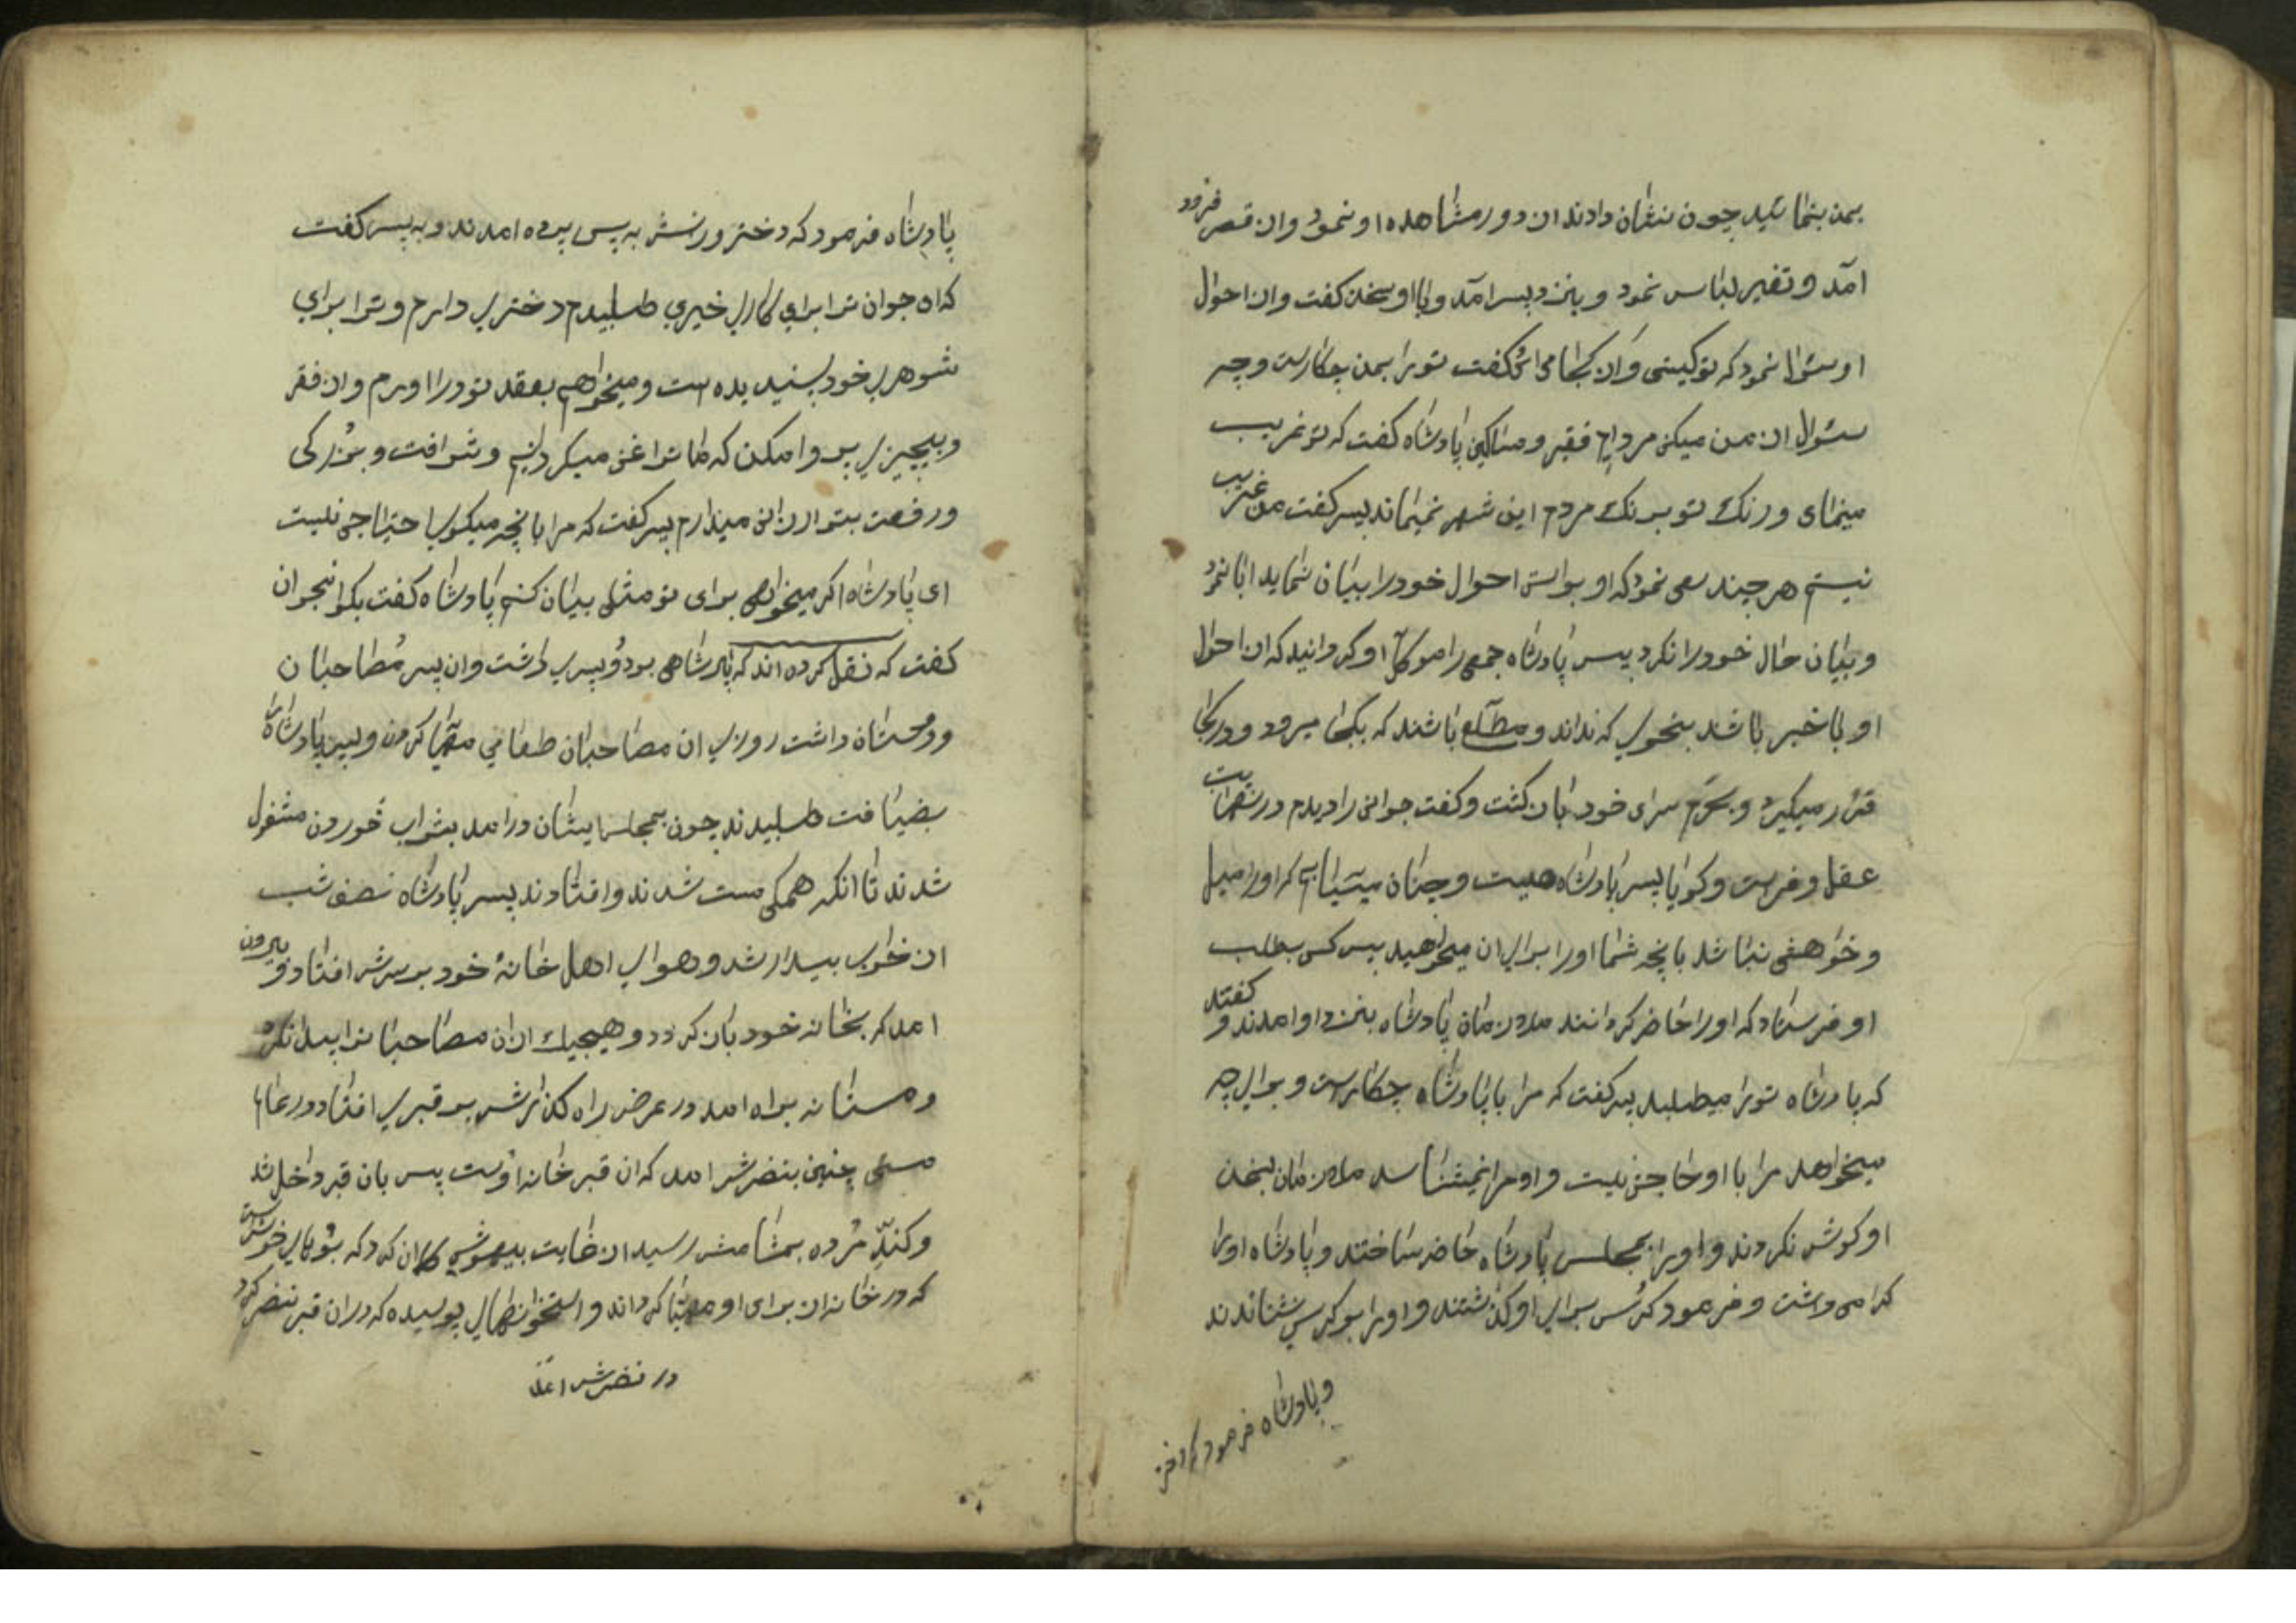 بمن بنمائید چون نشان دادند از دور مشاهده او نمود و از قصر فرود
آمد و تغیر لباس نمود و بنزد پسر آمد و با او سخن کفت و از احوال
او سئوال نمود که تو کیستی و از کجا می ائی کفت تو را بمن چکار است و چه
سئوال از من میکنی مردایم فقیر و مساکین پادشاه کفت که تو غریب
مینمای و رنک تو برنک مردم این شهر نمیماند پسر کفت من غریب
نیستم هر چند سعی نمود که او براستی احوال خود را بیان نماید ابا نمود
و بیان حال خود را نکرد پس پادشاه جمعی را موکل او کردانید که از احوال
او با خبر باشد بنحوی که نداند و مطلع باشند که بکجا میرود و در کجا
قرار میکیرد و بحرم سرای خود باز کشت و کفت جوانی را دیدم در نهایت
عقل و فراست و کویا پسر پادشاه هست و چنان میتیابم که او را میل
و خواهشی نباشد بانچه شما او را برای ان میخواهید پس کس بطلب
او فرستاد که او را حاضر کردانند ملازمان پادشاه بنزد او امدند و کفتند
که پادشاه تو را میطلبد پسر کفت که مرا با پادشاه چکار است و برای چه
میخواهد مرا با او حاجتی نیست و او مرا نمیشناسد ملازمان بسخن
او کوش نکردند و او را بمجلس پادشاه حاضر ساختند و پادشاه او را
کرامی داشت و فرمود کرسی برای او کذاشتند و او را بر کرسی نشاندند
و پادشاه فرمود که دختر
پادشاه فرمود که دختر و زنش به پس پرده امدند و به پسر کفت
که اه جوان ترا برای کار خیری طلبیدم دختری دارم و ترا برای
شوهری خود پسندیده است و میخواهم بعقد تو در اورم و از فقر
و بیچیزی پروا مکن که ما ترا غنی میکردانیم و شرافت و بزرکی
و رفعت بتو ارزانی میدارم پسر کفت که مرا بانچه میکوی احتیاجی نیست
ای پادشاه اکر میخواهی برای تو مثلی بیان کنم پادشاه کفت بکو انجوان
کفت که نقل کرده اند که پادشاهی بود و پسری داشت و ان پسر مصاحبان
و دوستان داشت روزی ان مصاحبان طعامی مهیا کردند و پسر پادشاه را
بضیافت طلبیدند چون بمجلس ایشان درامد بشراب خوردن مشغول
شدند تا انکه همکی مست شدند و افتادند پسر پادشاه نصف شب
از خواب بیدار شد و هوای اهل خانهٔ خود بر سرش افتاد و بیرون
امد که بخانه خود باز کردد و هیچیک از ان مصاحبانرا بیدار نکرد
و مستانه براه امد در عرض راه کذارش بر قبری افتاد و در عالم
مستی چنین بنضرش امد که ان قبر خانه اوست پس بان قبر داخل شد
و کند مرده بمشامش رسید از غایت بیهوشی کمان کرد که بوی‌های خوش است
که در خانه ان برای او مهیا کرده‌اند و استخوانهای پوسیده که در ان قبر بنضرش
در نضرش امد